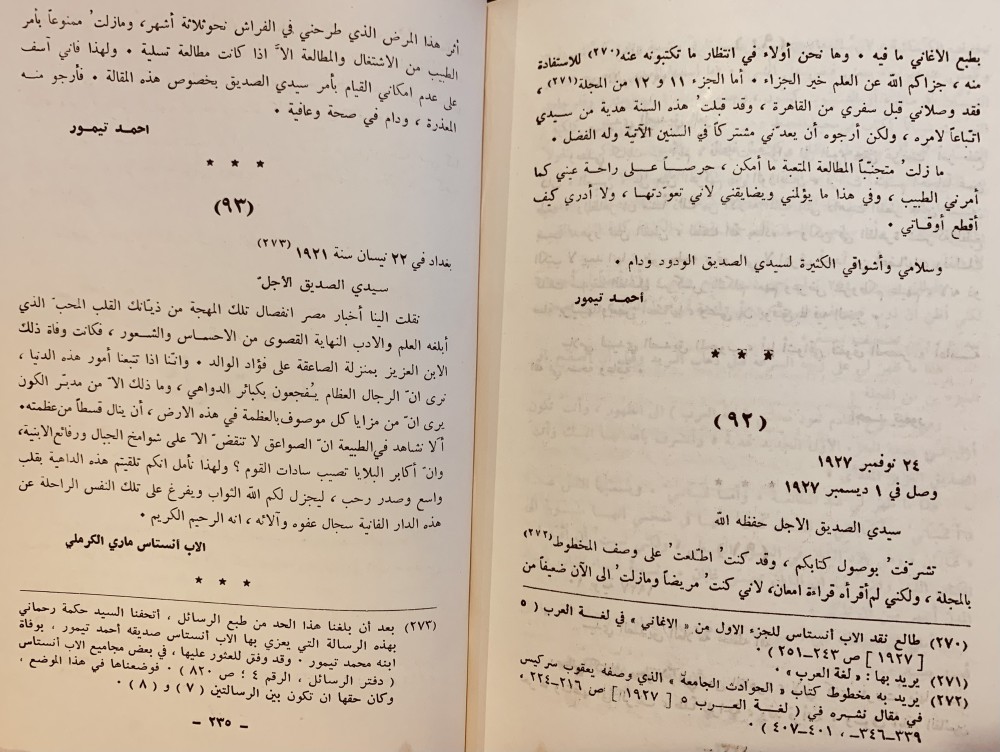 بطبع الاغاني ما فيه ٠ وها نحن أولاء في انتظار ما تكتبونه عنه(٢٧٠) للاستفادة
منه ، جزاكم الله عن العلم خير الجزاء ٠ أما الجزء ١١ و ١٢ من المجلة(٢٧١) ،
فقد وصلاني قبل سفري من القاهرة ، وقد قبلت' هذه السنة هدية من سيدي
اتّباعاً لامره ، ولكن أرجوه أن يعدّني مشتركاً في السنين الآتية وله الفضل ٠
ما زلت' متجنّباً المطالعة المتعبة ما أمكن ، حرصاً على راحة عيني كما
أمرني الطبيب ، وفي هذا ما يؤلمني ويضايقني لاني تعوّدتها ، ولا أدري كيف
أقطع أوقاتي ٠
وسلامي وأشواقي الكثيرة لسيدي الصديق الودود ودام ٠
أحمد تيمور
* * *
(٩٢)
٢٤ نوفمبر ١٩٢٧
وصل في ١ ديسمبر ١٩٢٧
سيدي الصديق الاجل حفظه الله
تشرّفت' بوصول كتابكم ، وقد كنت' اطّلعت' على وصف المخطوط(٢٧٢)
بالمجلة ، ولكني لم أقرأه قراءة امعان، لاني كنت' مريضاً ومازلت' الى الآن ضعيفاً من
(٢٧٠) طالع نقد الاب أنستاس للجزء الاول من « الاغاني » في لغة العرب ( ٥
[ ١٩٢٧ ] ص ٢٤٣-٢٥١ ) ٠
(٢٧١) يريد بها : « لغة العرب » ٠
(٢٧٢) يريد به مخطوط كتاب « الحوادث الجامعة » الذي وصفه يعقوب سركيس
في مقال نشره في ( لغة العرب ٥ [ ١٩٢٧ ] ص ٢١٦-٢٢٤ ،
٣٣٩-٣٤٦ ، ٤٠١-٤٠٧ ) ٠
أثر هذا المرض الذي طرحني في الفراش نحو ثلاثة أشهر، ومازلت' ممنوعاً بأمر
الطبيب من الاشتغال والمطالعة الاّ اذا كانت مطالعة تسلية ٠ ولهذا فاني آسف
على عدم امكاني القيام بأمر سيدي الصديق بخصوص هذه المقالة ٠ فأرجو منه
المعذرة ، ودام في صحة وعافية ٠
احمد تيمور
* * *
(٩٣)
بغداد في ٢٢ نيسان سنة ١٩٢١ (٢٧٣)
سيدي الصديق الأجلّ
نقلت الينا أخبار مصر انفصال تلك المهجة من ذيّانك القلب المحبّ الذي
أبلغه العلم والادب النهاية القصوى من الاحساس والشعور ، فكانت وفاة ذلك
الابن العزيز بمنزلة الصاعقة على فؤاد الوالد ٠ واننا اذا تتبعنا أمور هذه الدنيا ،
نرى انّ الرجال العظام يُفجعون بكبائر الدواهي ، وما ذلك الاّ من مدبّر الكون
يرى انّ من مزايا كل موصوف بالعظمة في هذه الارض ، أن ينال قسطاً من عظمته٠
ألا نشاهد في الطبيعة انّ الصواعق لا تنقضّ الاّ على شوامخ الجبال ورفائع الابنية،
وانّ أكابر البلايا تصيب سادات القوم ؟ ولهذا نأمل انكم تلقيتم هذه الداهية بقلب
واسع وصدر رحب ، ليجزل لكم الله الثواب ويفرغ على تلك النفس الراحلة عن
هذه الدار الفانية سجال عفوه وآلائه ، انه الرحيم الكريم ٠
الاب أنستاس ماري الكرملي
* * *
(٢٧٣) بعد أن بلغنا هذا الحد من طبع الرسائل ، أتحفنا السيد حكمة رحماني
بهذه الرسالة التي يعزي بها الاب أنستاس صديقه أحمد تيمور ، بوفاة
ابنه محمد تيمور ٠ وقد وفق للعثور عليها ، في بعض مجاميع الاب أنستاس
( دفتر الرسائل ، الرقم ٤ ؛ ص ٨٢٠ ) ٠ فوضعناها في هذا الموضع ،
وكان حقها ان تكون بين الرسالتين ( ٧ ) و ( ٨ ) ٠
- ٢٣٥ -